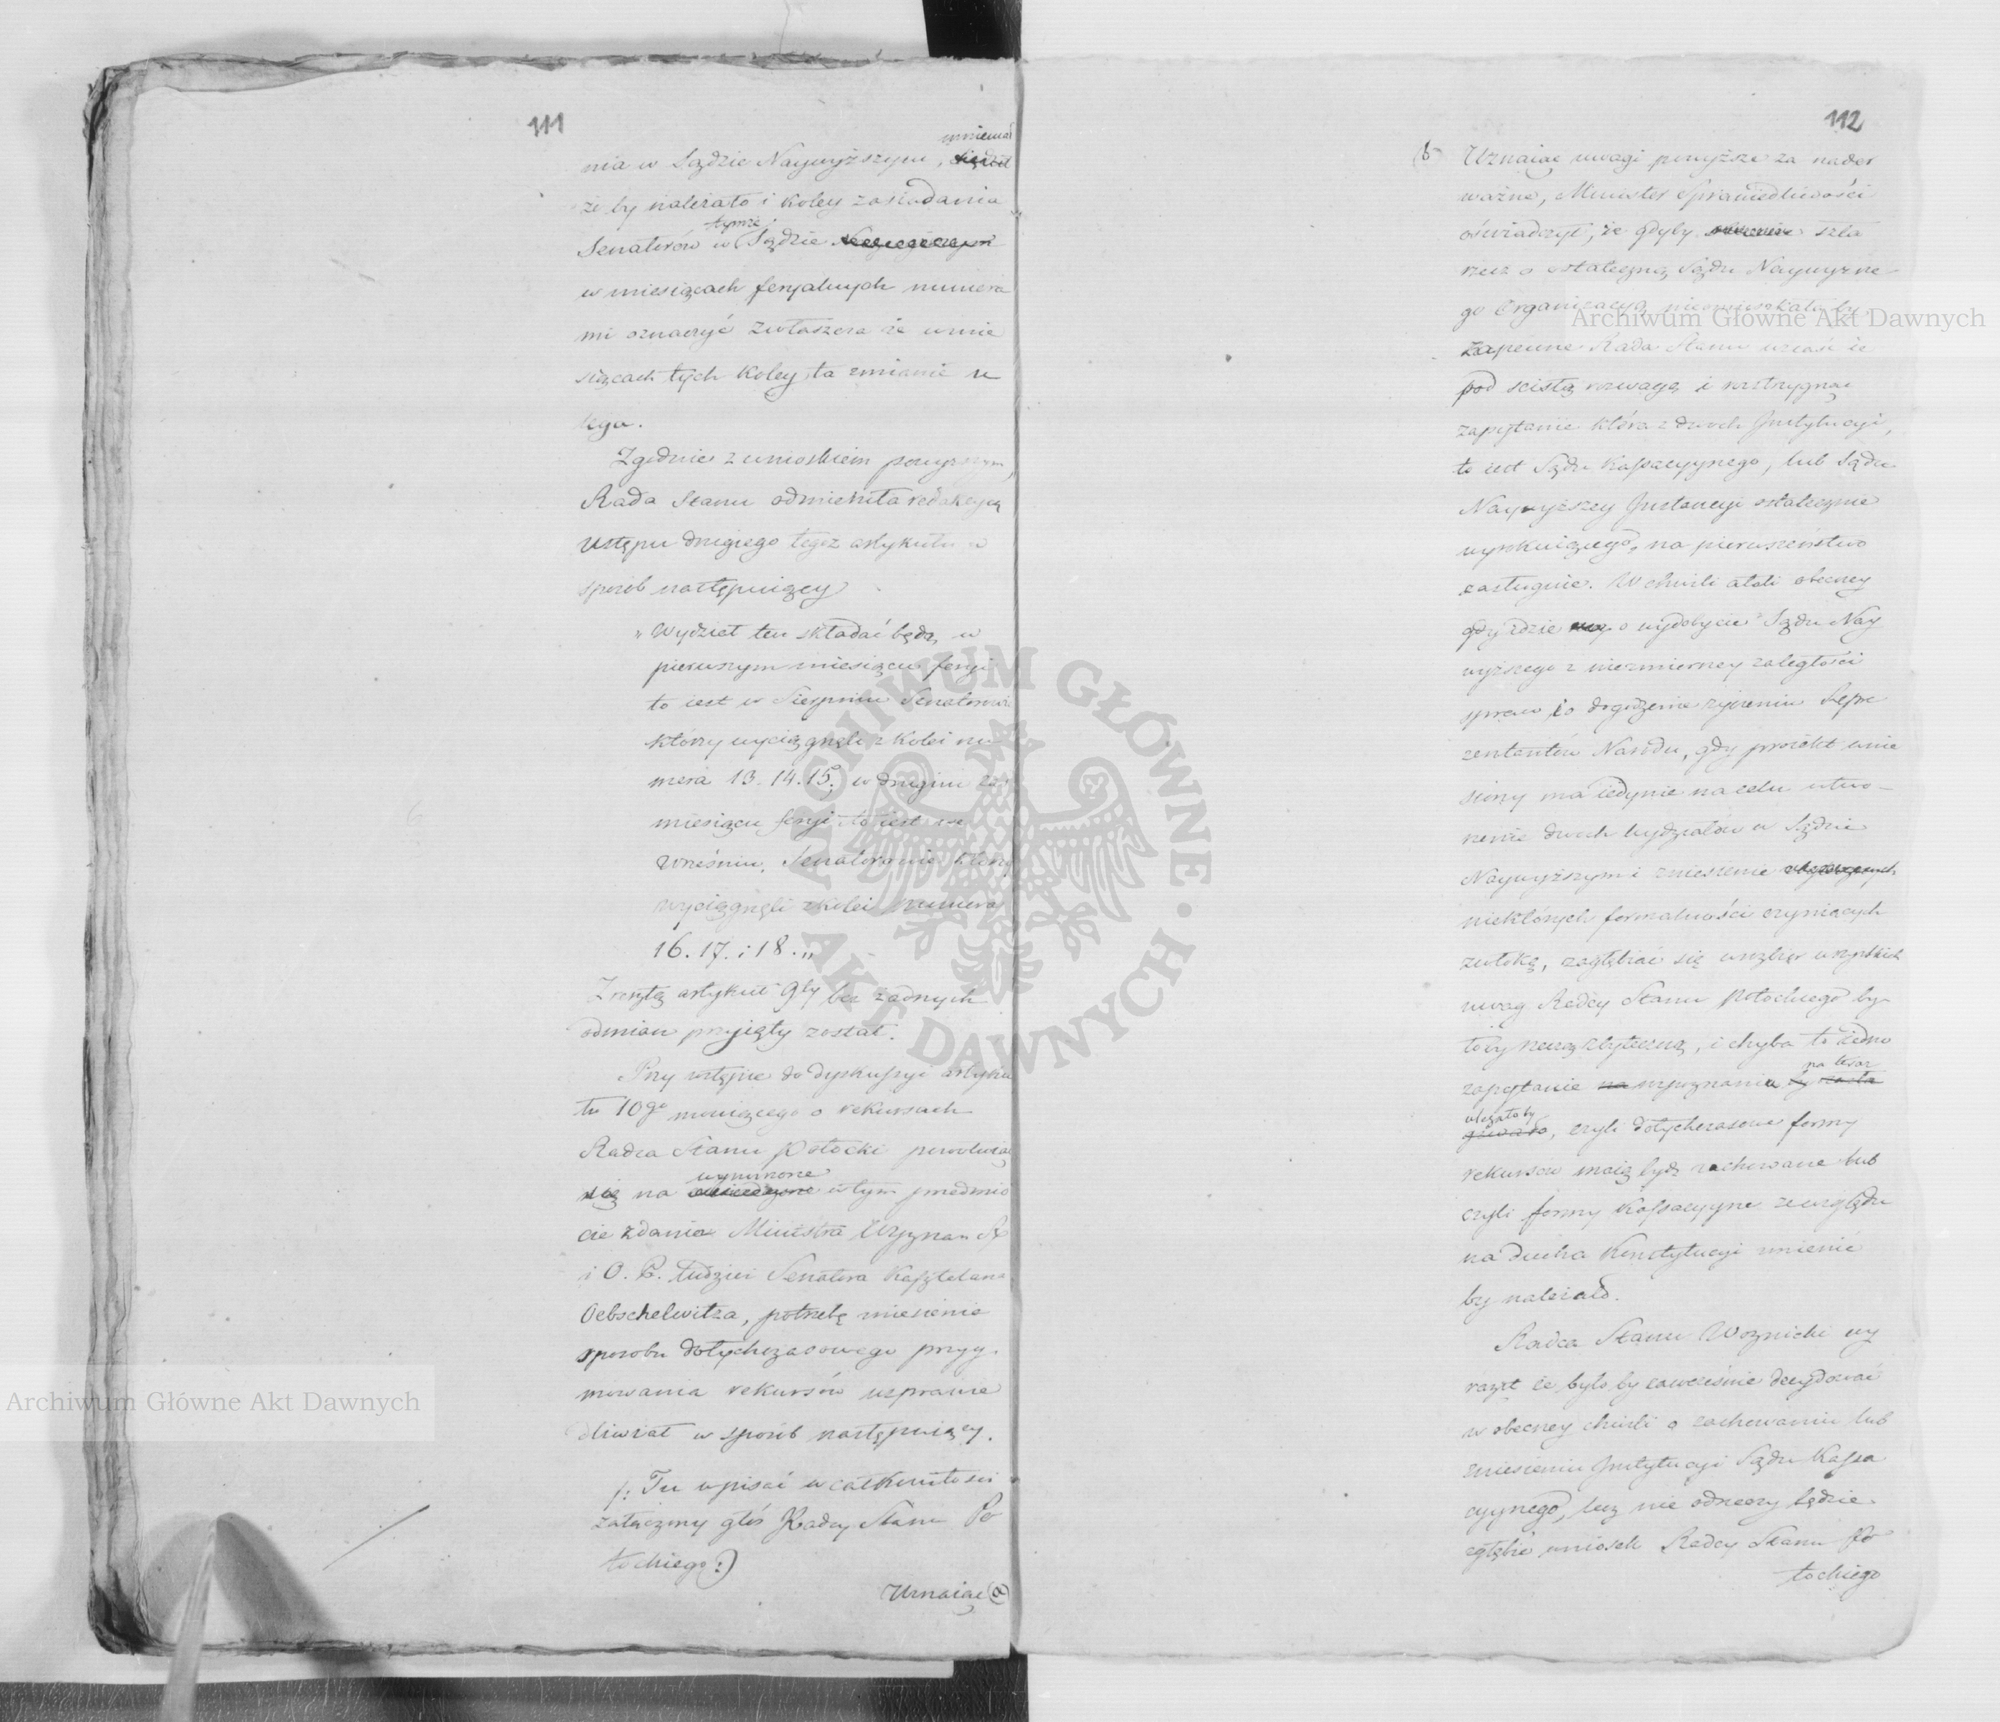 111
mniemał
nia w Sądzie Naywyższym,
że by należało i koley zasiadania
tymże
Senatorów w Sądzie
w miesiącach feryalnych numera
mi oznaczyć zwłaszcza że w mie
siącach tych koley ta zmianie u
lega.
Zgodnie z wnioskiem powyższym,
Rada Stanu odmieniła redakcyą
Ustępu drugiego tegoż artykułu w
sposób następuiący
„Wydział ten składać będą, w
pierwszym miesiącu feryi
to iest w Sierpniu Senatorowie
którzy wyciągnęli z kolei nu
mera 13. 14. 15, w drugim zaś
miesiącu feryi to iest we
Wrześniu, Senatorowie którzy
wyciągnęli z kolei numera
16. 17. i 18.„
Zresztą artykuł 9ty bez żadnych
odmian przyjęty został.
Przy wstępie do dyskussyi artyku
łu 10go mówiącego o rekursach
Radca Stanu Potocki powołując
wynurzone
się na w tym przedmio
cie zdania Ministra Wyznań R.
i O. P. tudzież Senatora Kasztelana
Oebschelwitza, potrzebę zniesienia
sposobu dotychczasowego przyy-
mowania rekursów usprawie
dliwiał w sposób następuiący.
/: Tu wpisać w całkowitości
załączony głos Radcy Stanu Po
tockiego :)
Uznaiąc (a)
112
(b Uznaiąc uwagi powyższe za nader
ważne, Minister Sprawiedliwości
oświadczył, że gdyby szła
rzecz o ostateczną Sądu Naywyższe
go Organizacyą, nieomieszkała by,
zapewne Rada Stanu wziąść ie
pod ścisłą rozwagę i rozstrzygnąć
zapytanie która z dwóch Instytucyi,
to iest Sądu Kassacyynego, lub Sądu
Naywyższey Instancyi ostatecznie
wyrokuiącego, na pierwszeństwo
zasługuie. W chwili atoli obecney
gdy idzie o wydobycie Sądu Nay
wyższego z niezmierney zaległości
spraw i o dogodzenie życzeniu Repre
zentantów Narodu, gdy proiekt wnie
siony ma iedynie na celu utwo-
rzenie dwóch wydziałów w Sądzie
Naywyższym i zniesienie
niektórych formalności czyniących
zwłokę, zagłębiać się w rozbiór wszystkich
uwag Radcy Stanu Potockiego by-
łoby rzeczą zbyteczną, i chyba to iedno
na teraz
zapytanie na rozpoznania
ulegałoby
, czyli dotychczasowe formy
rekursów maią bydź zachowane lub
czyli formy Kassacyyne ze względu
na ducha Konstytucyi zmienić
by należało.
Radca Stanu Woznicki wy
raził że było by zawcześnie decydować
w obecney chwili o zachowaniu lub
zniesieniu Instytucyi Sądu Kassa
cyynego, lecz nie od rzeczy będzie
zgłębić wniosek Radcy Stanu Po
tockiego
Archiwum Główne Akt Dawnych
Archiwum Główne Akt Dawnych
ARCHIWUM GŁÓWNE • AKT DAWNYCH •